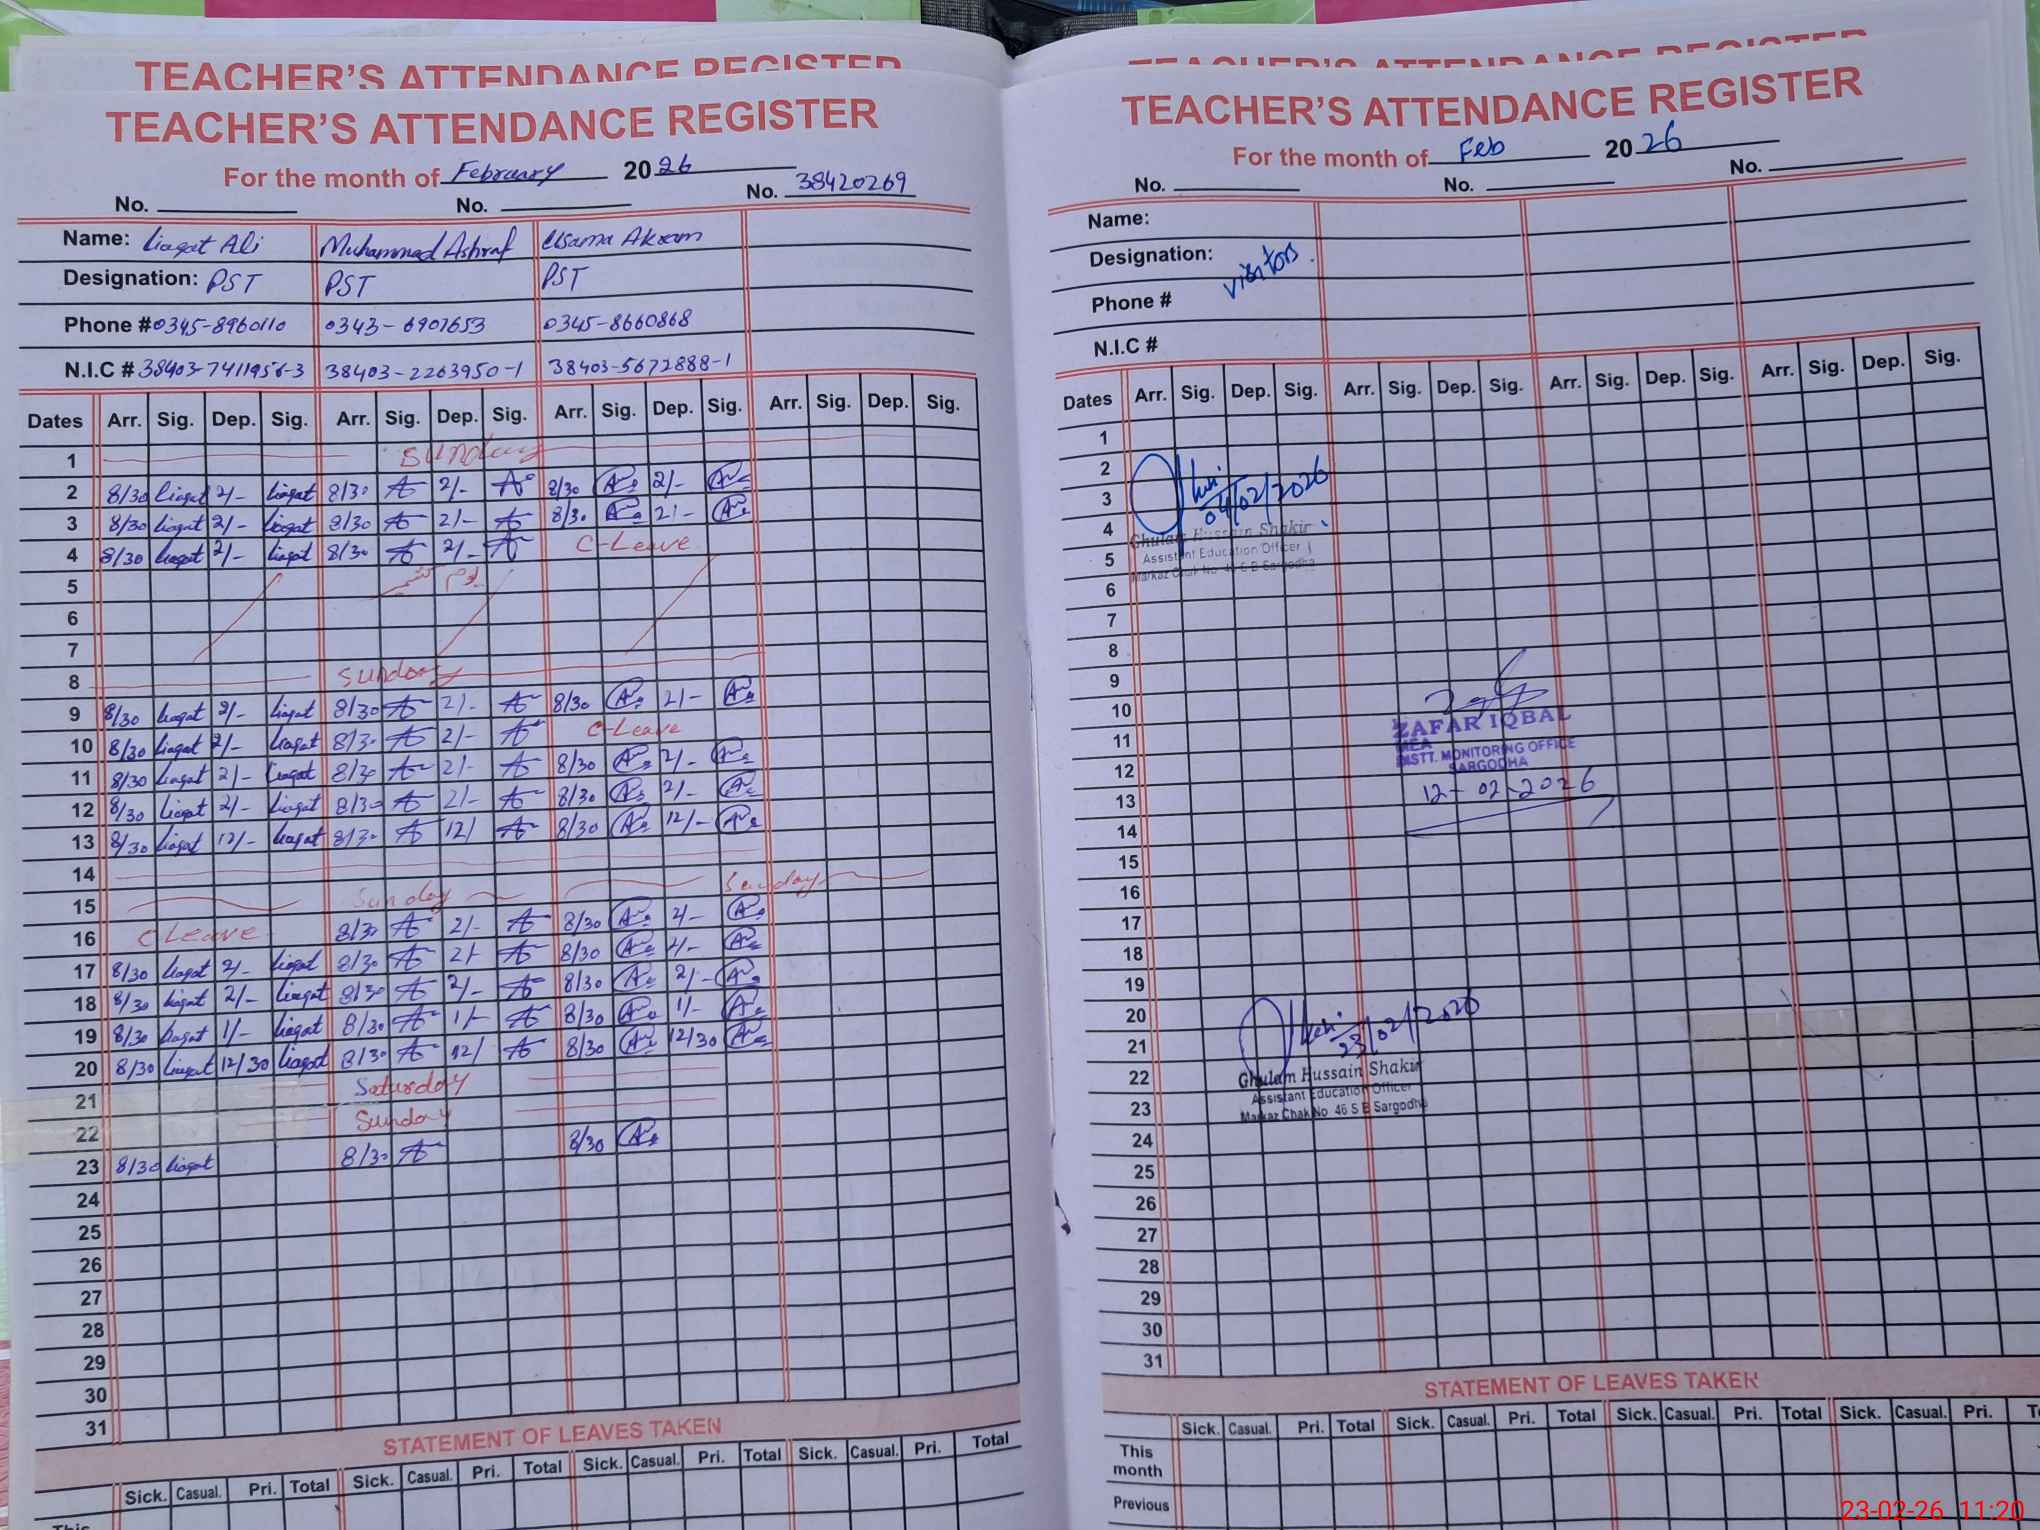 TEACHER'S ATTENDANCE REGISTER
TEACHER'S ATTENDANCE REGISTER
For the month of February 2026
No. No. No. 38420269
Name: Liaqat Ali Muhammad Ashraf Usama Akram
Designation: PST PST PST
Phone # 0345-8960110 0343-6907653 0345-8660868
N.I.C # 38403-7411956-3 38403-2263950-1 38403-5672888-1
Dates Arr. Sig. Dep. Sig. Arr. Sig. Dep. Sig. Arr. Sig. Dep. Sig. Arr. Sig. Dep. Sig.
1 Sunday
2 8/30 Liaqat 2/- Liaqat 8/30 A 2/- A 8/30 2/-
3 8/30 Liaqat 2/- Liaqat 8/30 A 2/- A 8/30 2/-
4 8/30 Liaqat 2/- Liaqat 8/30 A 2/- A C-Leave
5 یوم کشمیر
6
7
8 Sunday
9 8/30 Liaqat 2/- Liaqat 8/30 A 2/- A 8/30 2/-
10 8/30 Liaqat 2/- Liaqat 8/30 A 2/- A C-Leave
11 8/30 Liaqat 2/- Liaqat 8/30 A 2/- A 8/30 2/-
12 8/30 Liaqat 2/- Liaqat 8/30 A 2/- A 8/30 2/-
13 8/30 Liaqat 12/- Liaqat 8/30 A 12/ A 8/30 12/-
14
15 Sunday Sunday
16 C Leave 8/30 A 2/- A 8/30 2/-
17 8/30 Liaqat 2/- Liaqat 8/30 A 2/- A 8/30 2/-
18 8/30 Liaqat 2/- Liaqat 8/30 A 2/- A 8/30 2/-
19 8/30 Liaqat 1/- Liaqat 8/30 A 1/- A 8/30 1/-
20 8/30 Liaqat 12/30 Liaqat 8/30 A 12/ A 8/30 12/30
21 Saturday
22 Sunday
23 8/30 Liaqat 8/30 A 8/30
24
25
26
27
28
29
30
31
STATEMENT OF LEAVES TAKEN
Sick. Casual. Pri. Total Sick. Casual. Pri. Total Sick. Casual. Pri. Total Sick. Casual. Pri. Total
This
TEACHER'S ATTENDANCE REGISTER
TEACHER'S ATTENDANCE REGISTER
For the month of Feb 2026
No. No. No.
Name:
Designation:
visitors
Phone #
N.I.C #
Dates Arr. Sig. Dep. Sig. Arr. Sig. Dep. Sig. Arr. Sig. Dep. Sig. Arr. Sig. Dep. Sig.
1
2
3 04/02/2026
4 Ghulam Hussain Shakir
5 Assistant Education Officer
Markaz Chak No 46 S B Sargodha
6
7
8
9
10
11 ZAFAR IQBAL
MEA
12 DISTT. MONITORING OFFICE
SARGODHA
13 12-02-2026
14
15
16
17
18
19
20
21 23/02/2026
22 Ghulam Hussain Shakir
Assistant Education Officer
23 Markaz Chak No 46 S B Sargodha
24
25
26
27
28
29
30
31
STATEMENT OF LEAVES TAKEN
Sick. Casual. Pri. Total Sick. Casual. Pri. Total Sick. Casual. Pri. Total Sick. Casual. Pri.
This month
Previous
23-02-26 11:20